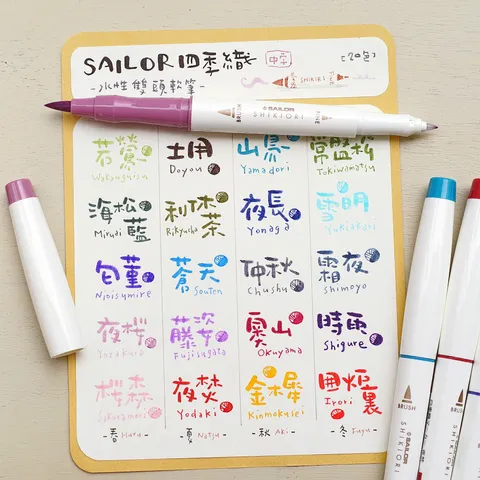 SAILOR四季織 中字 [20色]
-水性雙頭軟筆-
SHIKIORI
BRUSH SAILOR SHIKIORI FINE
若鶯 土用 山鳥 常盤松
Wakauguisu Doyou Yamadori Tokiwamatsu
海松藍 利休茶 夜長 雪明
Miruai Rikyucha Yonaga Yukiakari
匂菫 蒼天 仲秋 霜夜
Nioisumire Souten Chushu Shimoyo
夜桜 藤姿 奥山 時雨
Yozakura Fujisugata Okuyama Shigure
桜森 夜焚 金木犀 囲炉裏
Sakuramori Yodaki Kinmokusei Irori
-春 Haru- -夏 Natsu- -秋 Aki- -冬 Fuyu-
BRUSH SAILOR SHIKIORI
BRUSH SAILOR SHIKIORI